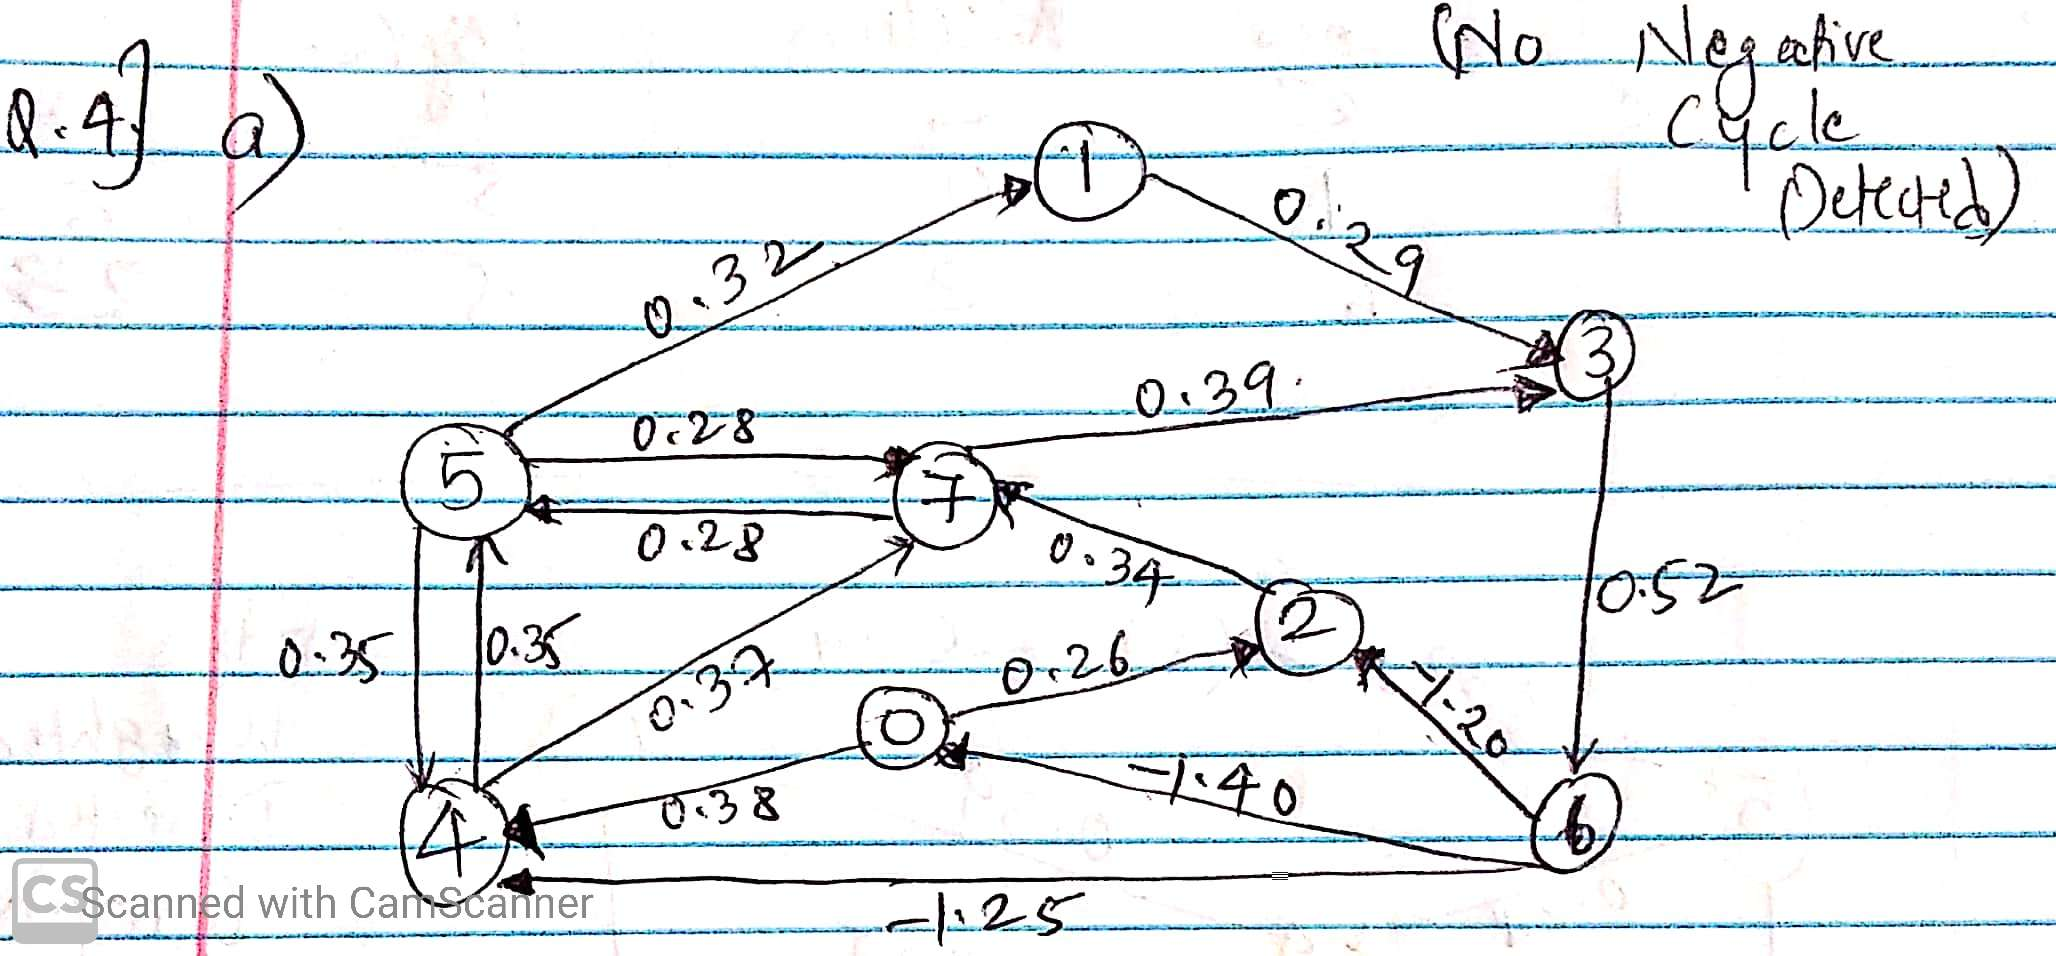 (No Negative
Q.4] a)
Cycle
Detected)
1
0.29
0.32
3
0.39
0.28
5
7
0.28
0.34
0.52
2
0.35
0.35
0.26
0.37
-1.20
0
-1.40
0.38
6
4
CS Scanned with CamScanner
-1.25